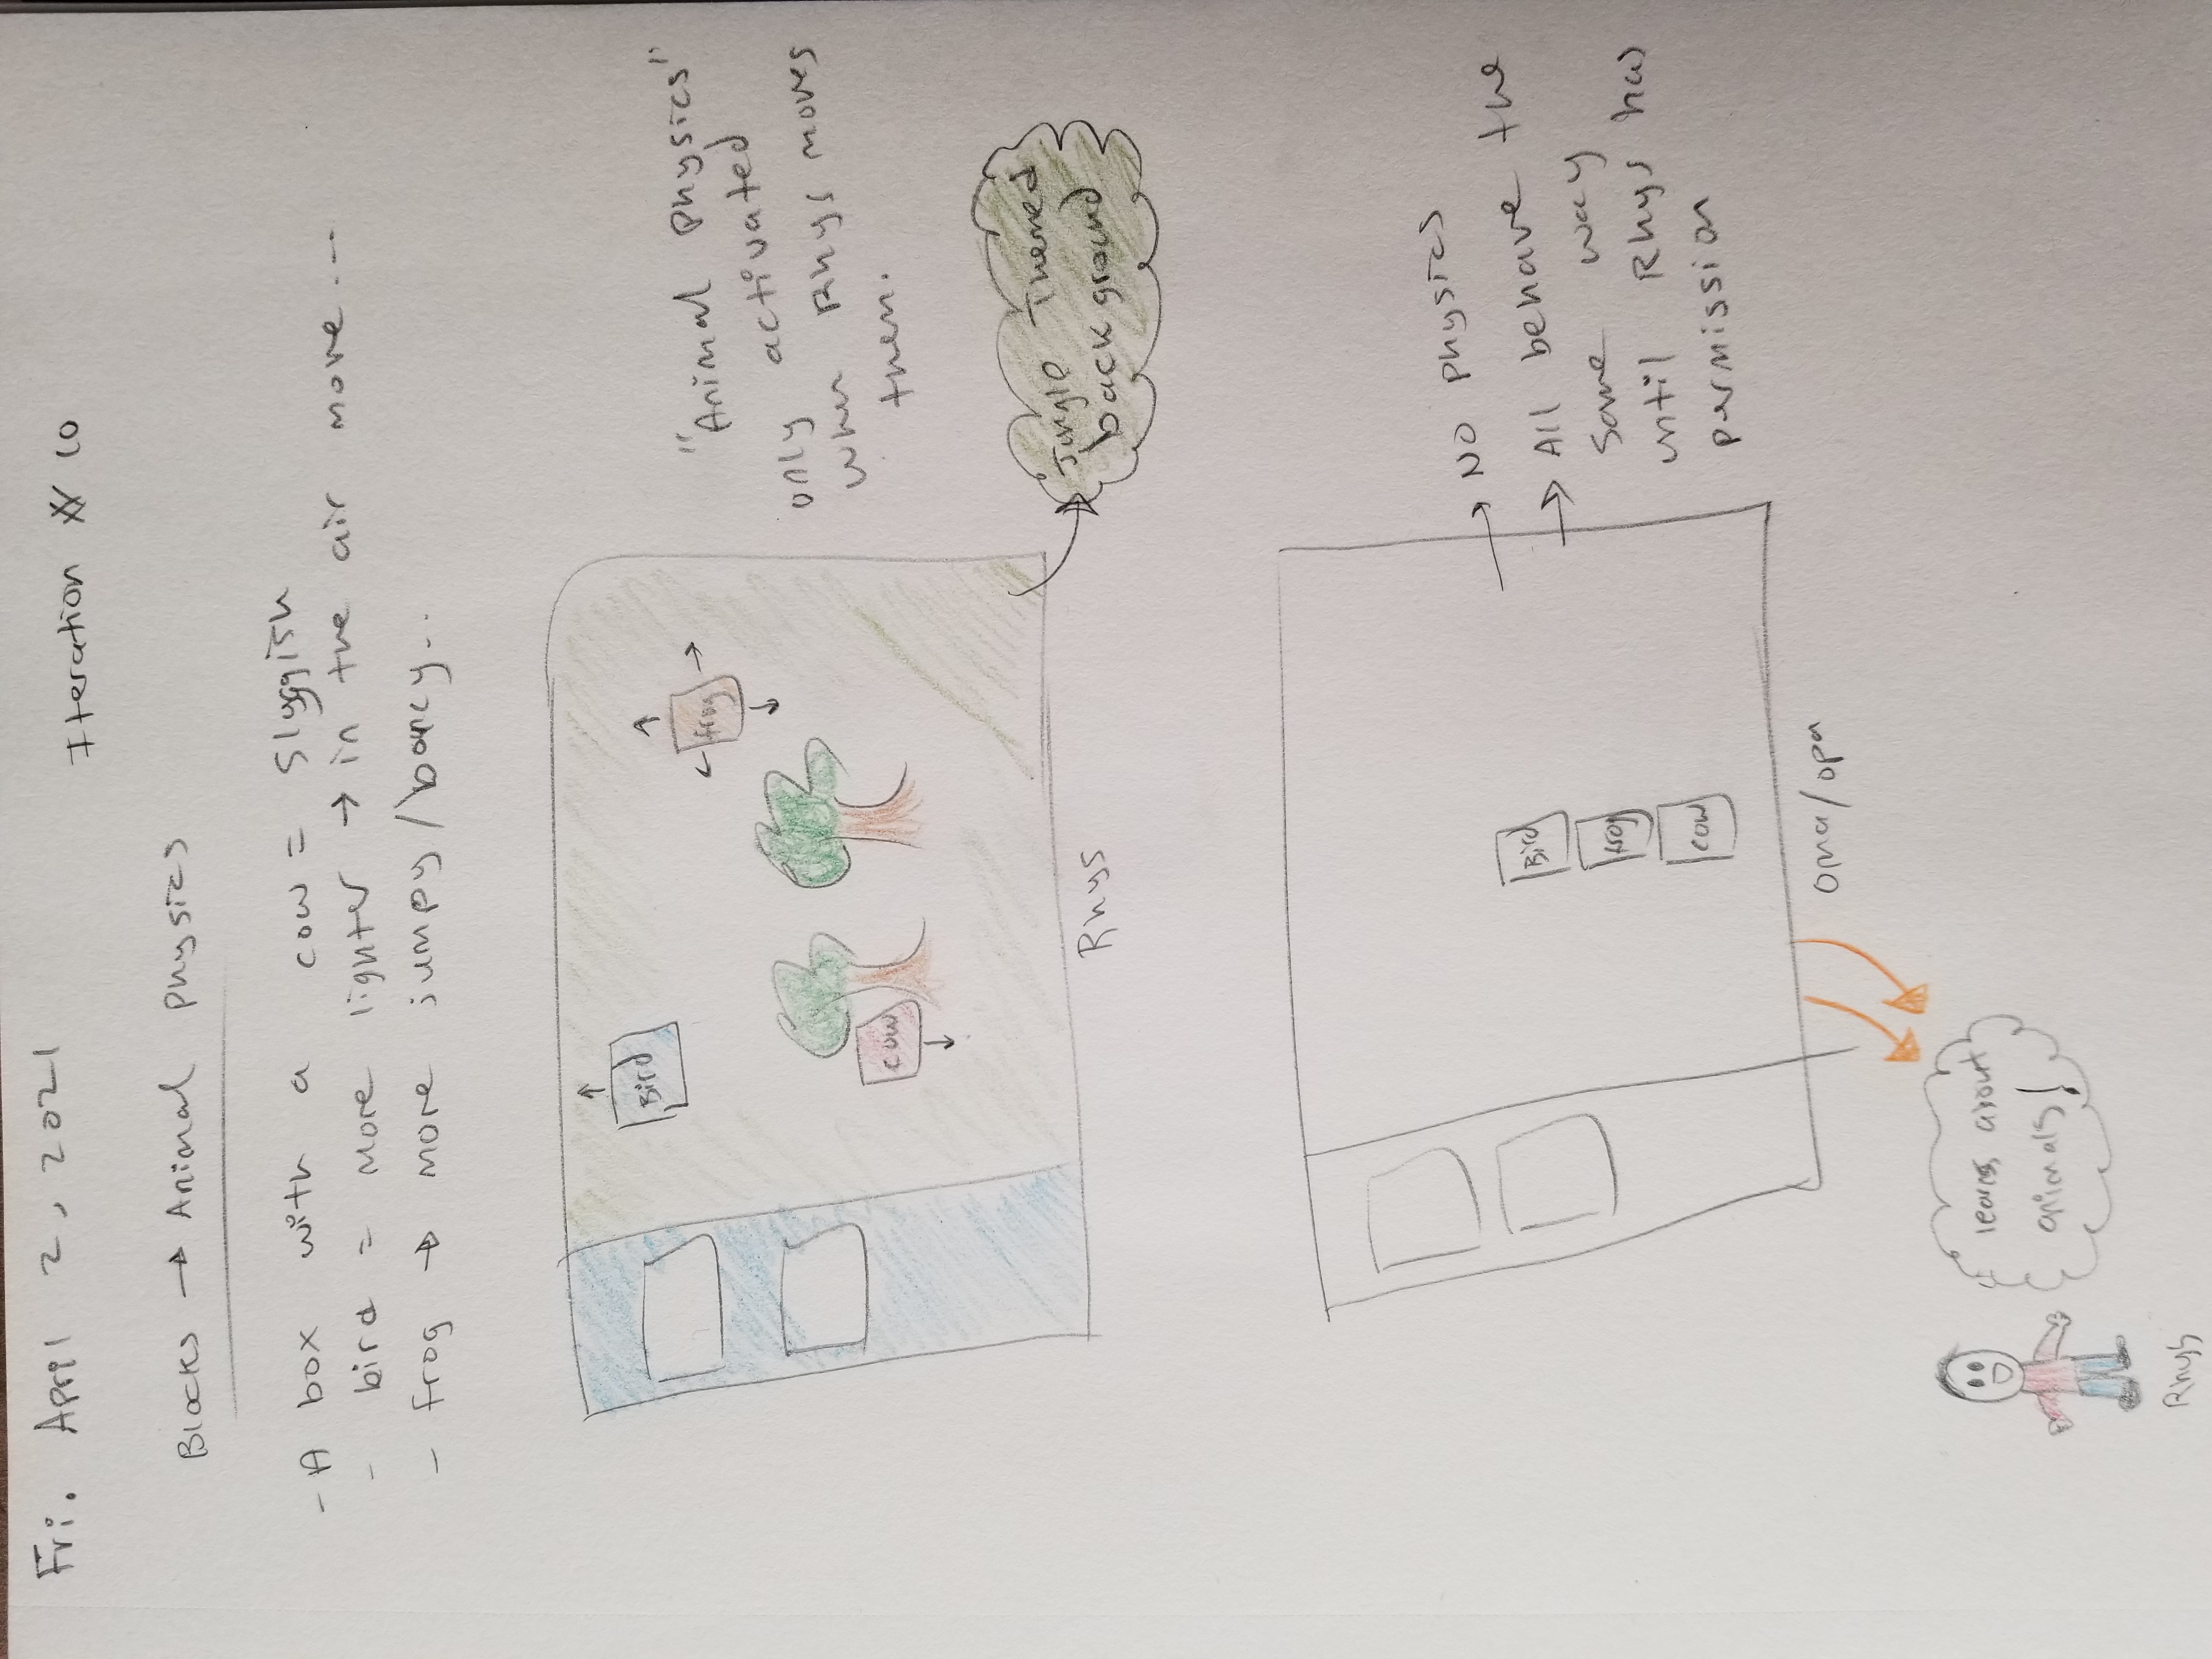 Fri. April 2, 2021 Iteration # 10
Blocks → Animal Physics
- A box with a cow = sluggish
- bird = more lighter → in the air more...
- frog → more jumpy/boncy...
"Animal physics"
only activated
when Rhys moves
them.
Bird
cow
frog
Jungle Themed
background
Rhys
→ NO physics
→ All behave the
same way
until Rhys has
permission
Bird
frog
cow
oma/opa
learns about
animals!
Rhys